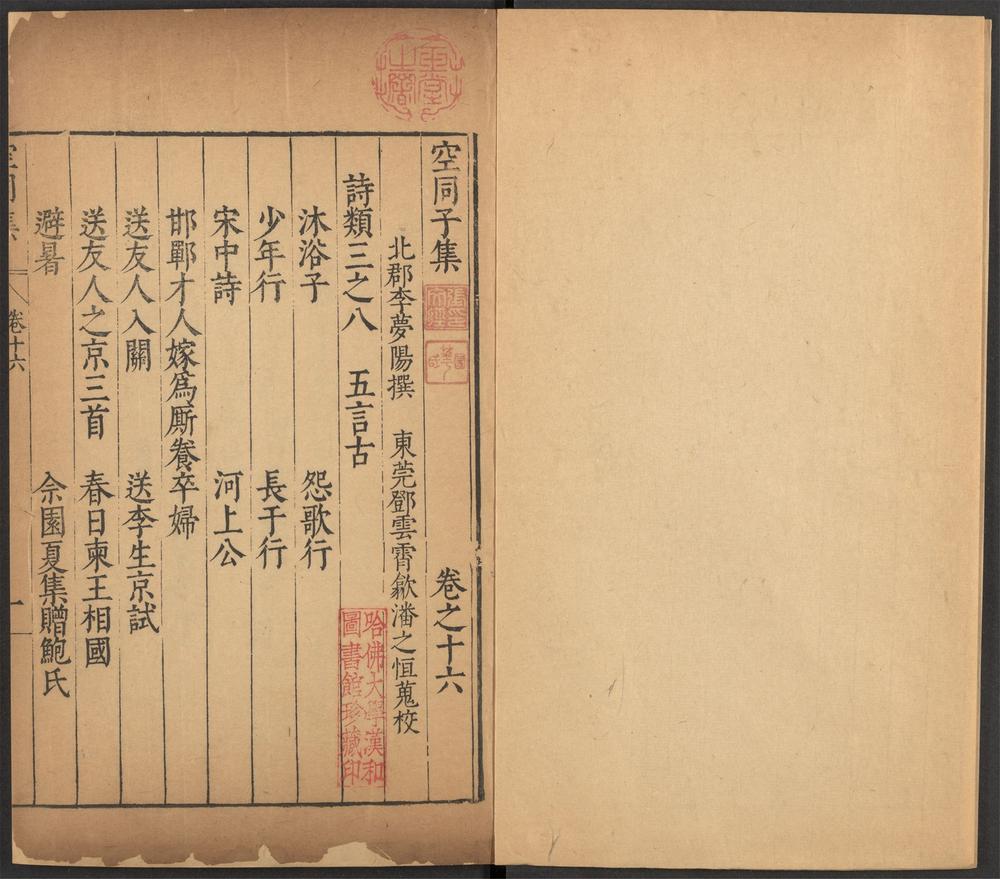 空同子集 卷之十六
北郡李夢陽撰 東莞鄧雲霄歙潘之恒蒐校
詩類三之八 五言古
沐浴子 怨歌行
少年行 長干行
宋中詩 河上公
邯鄲才人嫁爲厮養卒婦
送友人入關 送李生京試
送友人之京三首 春日柬王相國
避暑 余園夏集贈鮑氏
卷十六
一
哈佛大學漢和
圖書館珍藏印